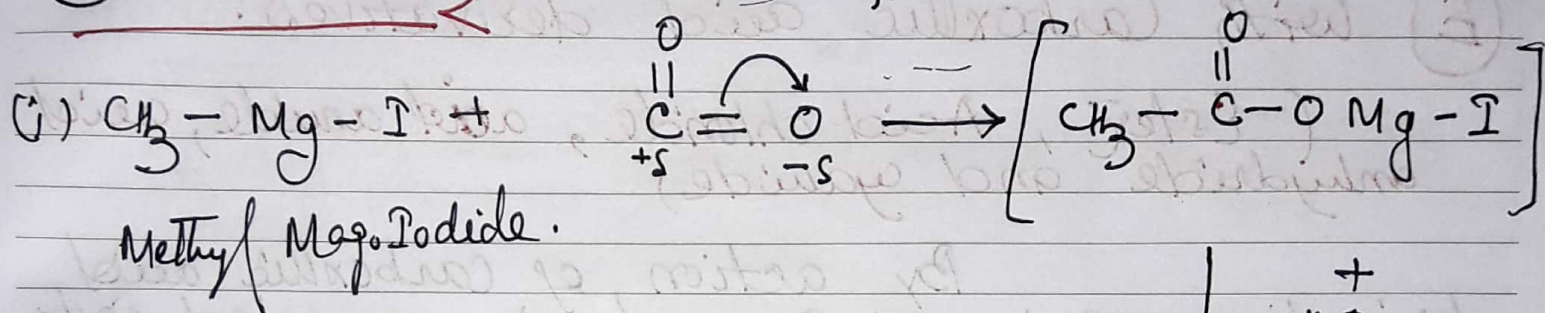 O O
|| ||
(i) CH3 – Mg – I + C = O → [ CH3 – C – O Mg – I ]
+δ –δ
Methyl Mag. Iodide.
+